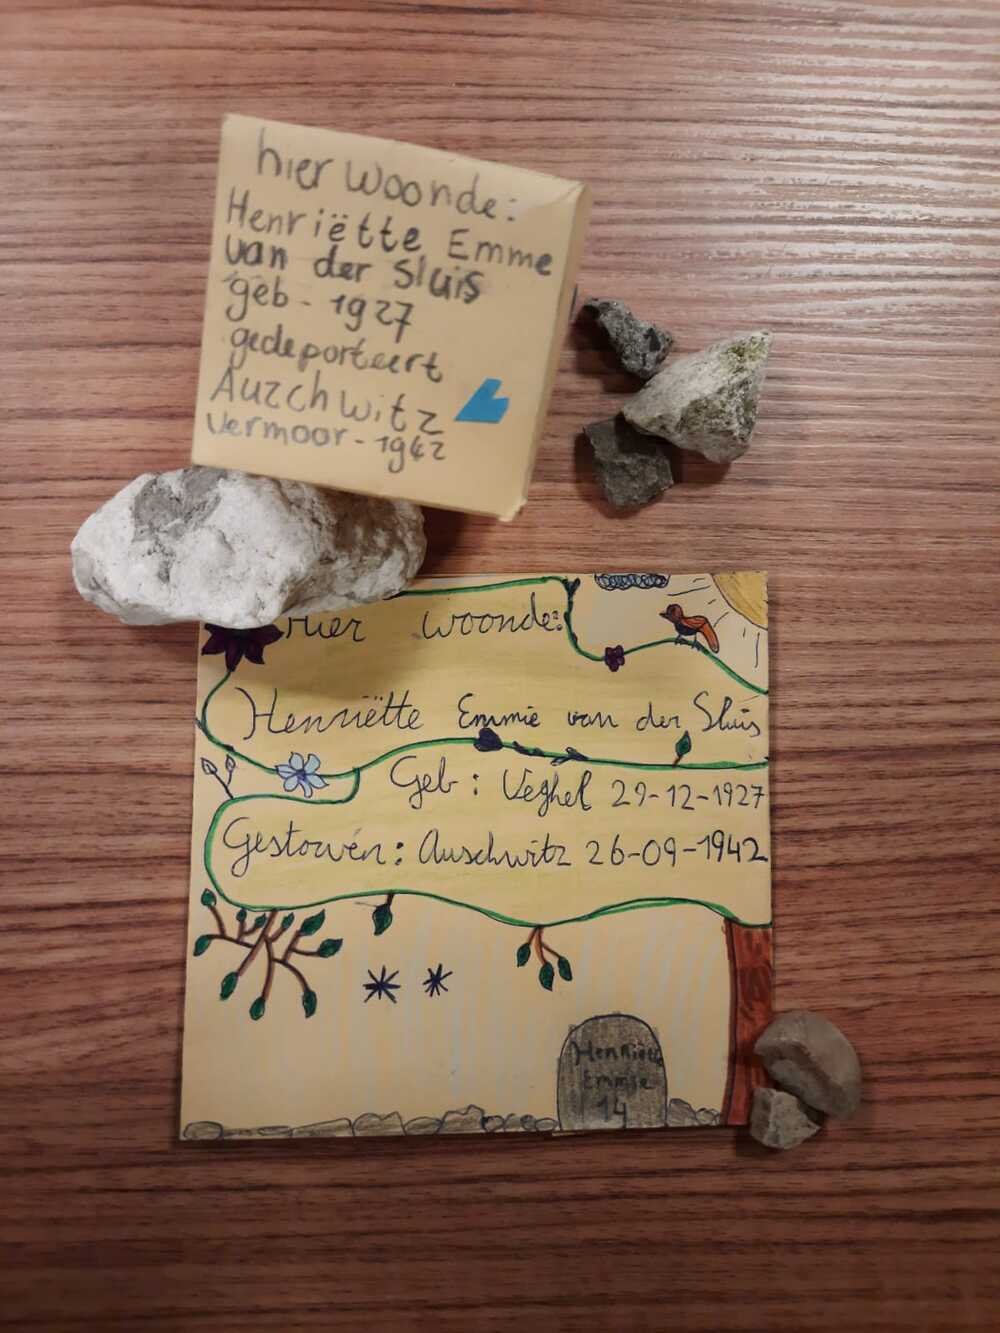 hier woonde:
Henriëtte Emme
van der Sluis
geb - 1927
gedeporteert
Auzchwitz
vermoor - 1942
Hier woonde:
Henriëtte Emmie van der Sluis
Geb : Veghel 29-12-1927
Gestorven : Auschwitz 26-09-1942
Henriëtte
Emmie
14